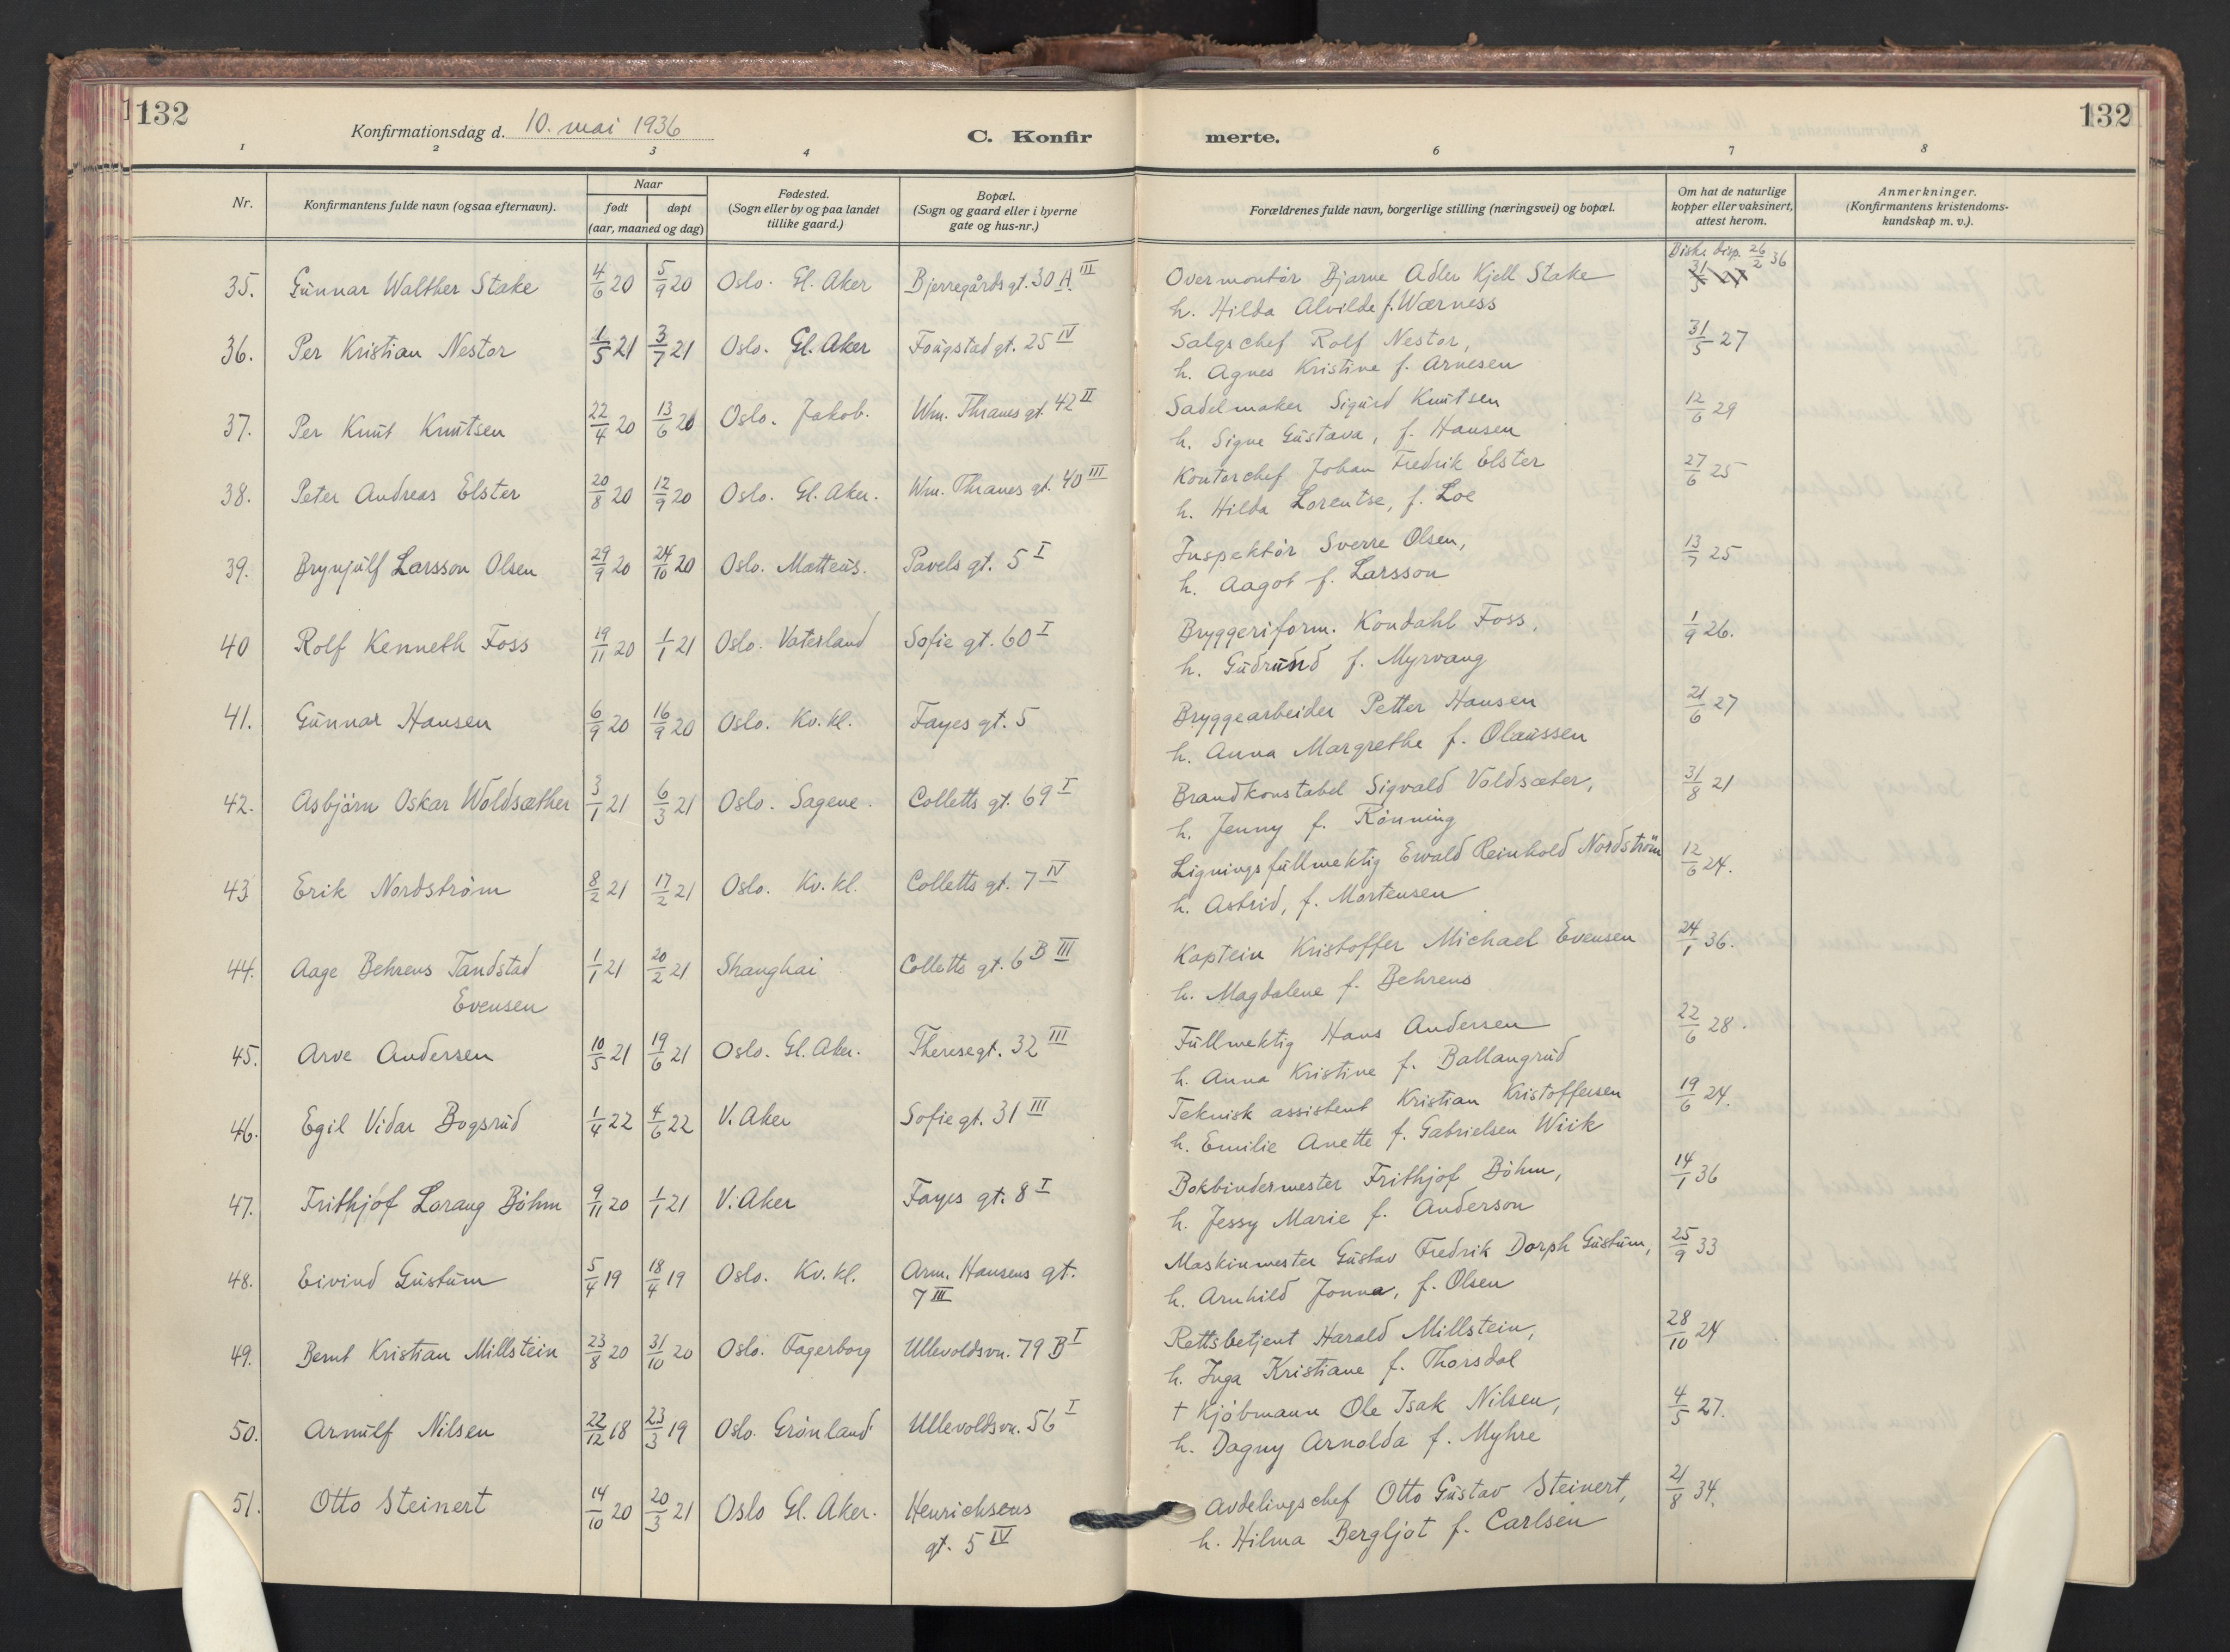 132
Konfirmationsdag d. 10. mai 1936
C. Konfirmerte.
132
1 2 3 4 6 7 8
Nr.
Konfirmantens fulde navn (ogsaa efternavn).
Naar
født døpt
(aar, maaned og dag)
Fødested.
(Sogn eller by og paa landet
tillike gaard.)
Bopæl.
(Sogn og gaard eller i byerne
gate og hus-nr.)
Forældrenes fulde navn, borgerlige stilling (næringsvei) og bopæl.
Om hat de naturlige
kopper eller vaksinert,
attest herom.
Anmerkninger.
(Konfirmantens kristendoms-
kundskap m. v.).
Biske. disp. 26/2 36
35. Gunnar Walther Stake 4/6 20 5/9 20 Oslo. Gl. Aker Bjerregårdsgt. 30 A III Overmontör Bjarne Adler Kjell Stake 31/5 27
h. Hilda Alvilde f. Wærness
36. Per Kristian Nestor 1/5 21 3/7 21 Oslo. Gl. Aker Fougstad gt. 25 IV Salgschef Rolf Nestor, 31/5 27
h. Agnes Kristine f. Arnesen
37. Per Knut Knutsen 22/4 20 13/6 20 Oslo. Jakob. Wm. Thranes gt. 42 II Sadelmaker Sigurd Knutsen 12/6 29
h. Signe Gustava, f. Hansen
38. Peter Andreas Elster 20/8 20 12/9 20 Oslo. Gl. Aker. Wm. Thranes gt. 40 III Kontorchef Johan Fredrik Elster 27/6 25
h. Hilda Lorentse, f. Loe
39. Brynjulf Larsson Olsen 29/9 20 24/10 20 Oslo. Matteus. Pavels gt. 5 I Inspektör Sverre Olsen, 13/7 25
h. Aagot f. Larsson
40 Rolf Kenneth Foss 19/11 20 1/1 21 Oslo. Vaterland Sofie gt. 60 I Bryggeriform. Kondahl Foss, 1/9 26.
h. Gudrund f. Myrvang
41. Gunnar Hansen 6/9 20 16/9 20 Oslo. Kv. kl. Fayes gt. 5 Bryggearbeider Petter Hansen 21/6 27
h. Anna Margrethe f. Olaussen
42. Asbjörn Oskar Woldsæther 3/1 21 6/3 21 Oslo. Sagene. Colletts gt. 69 I Brandkonstabel Sigvald Voldsæter, 31/8 21
h. Jenny f. Rönning
43 Erik Nordström 8/2 21 17/2 21 Oslo. Kv. kl. Colletts gt. 7 IV Ligningsfullmektig Ewald Reinhold Nordström 12/6 24.
h. Astrid, f. Mortensen
44. Aage Behrens Tandstad 1/1 21 20/2 21 Shanghai Colletts gt. 6 B III Kaptein Kristoffer Michael Evensen 24/1 36.
Evensen h. Magdalene f. Behrens
45. Arve Andersen 10/5 21 19/6 21 Oslo. Gl. Aker. Theresegt. 32 III Fullmektig Hans Andersen 22/6 28.
h. Anna Kristine f. Ballangrud
46. Egil Vidar Bogsrud 1/4 22 4/6 22 V. Aker Sofie gt. 31 III Teknisk assistent Kristian Kristoffersen 19/6 24.
h. Emilie Anette f. Gabrielsen Wiik
47. Frithjof Lorang Böhm 9/11 20 1/1 21 V. Aker Fayes gt. 8 I Bokbindermester Frithjof Böhm, 14/1 36
h. Jessy Marie f. Anderson
48. Eivind Gustum 5/4 19 18/4 19 Oslo. Kv. kl. Arm. Hansens gt. Maskinmester Gustav Fredrik Dorph Gustum, 25/9 33
7 III h. Arnhild Jonna, f. Olsen
49. Bernt Kristian Millstein 23/8 20 31/10 20 Oslo. Fagerborg Ullevoldsvn. 79 B I Rettsbetjent Harald Millstein, 28/10 24
h. Inga Kristiane f. Thorsdal
50. Arnulf Nilsen 22/12 18 23/3 19 Oslo. Grönland Ullevoldsvn. 56 I † Kjöbmann Ole Isak Nilsen, 4/5 27.
h. Dagny Arnolda f. Myhre
51. Otto Steinert 14/10 20 20/3 21 Oslo Gl. Aker. Henrichsens Avdelingschef Otto Gustav Steinert, 21/8 34.
gt. 5 IV h. Hilma Bergljot f. Carlsen